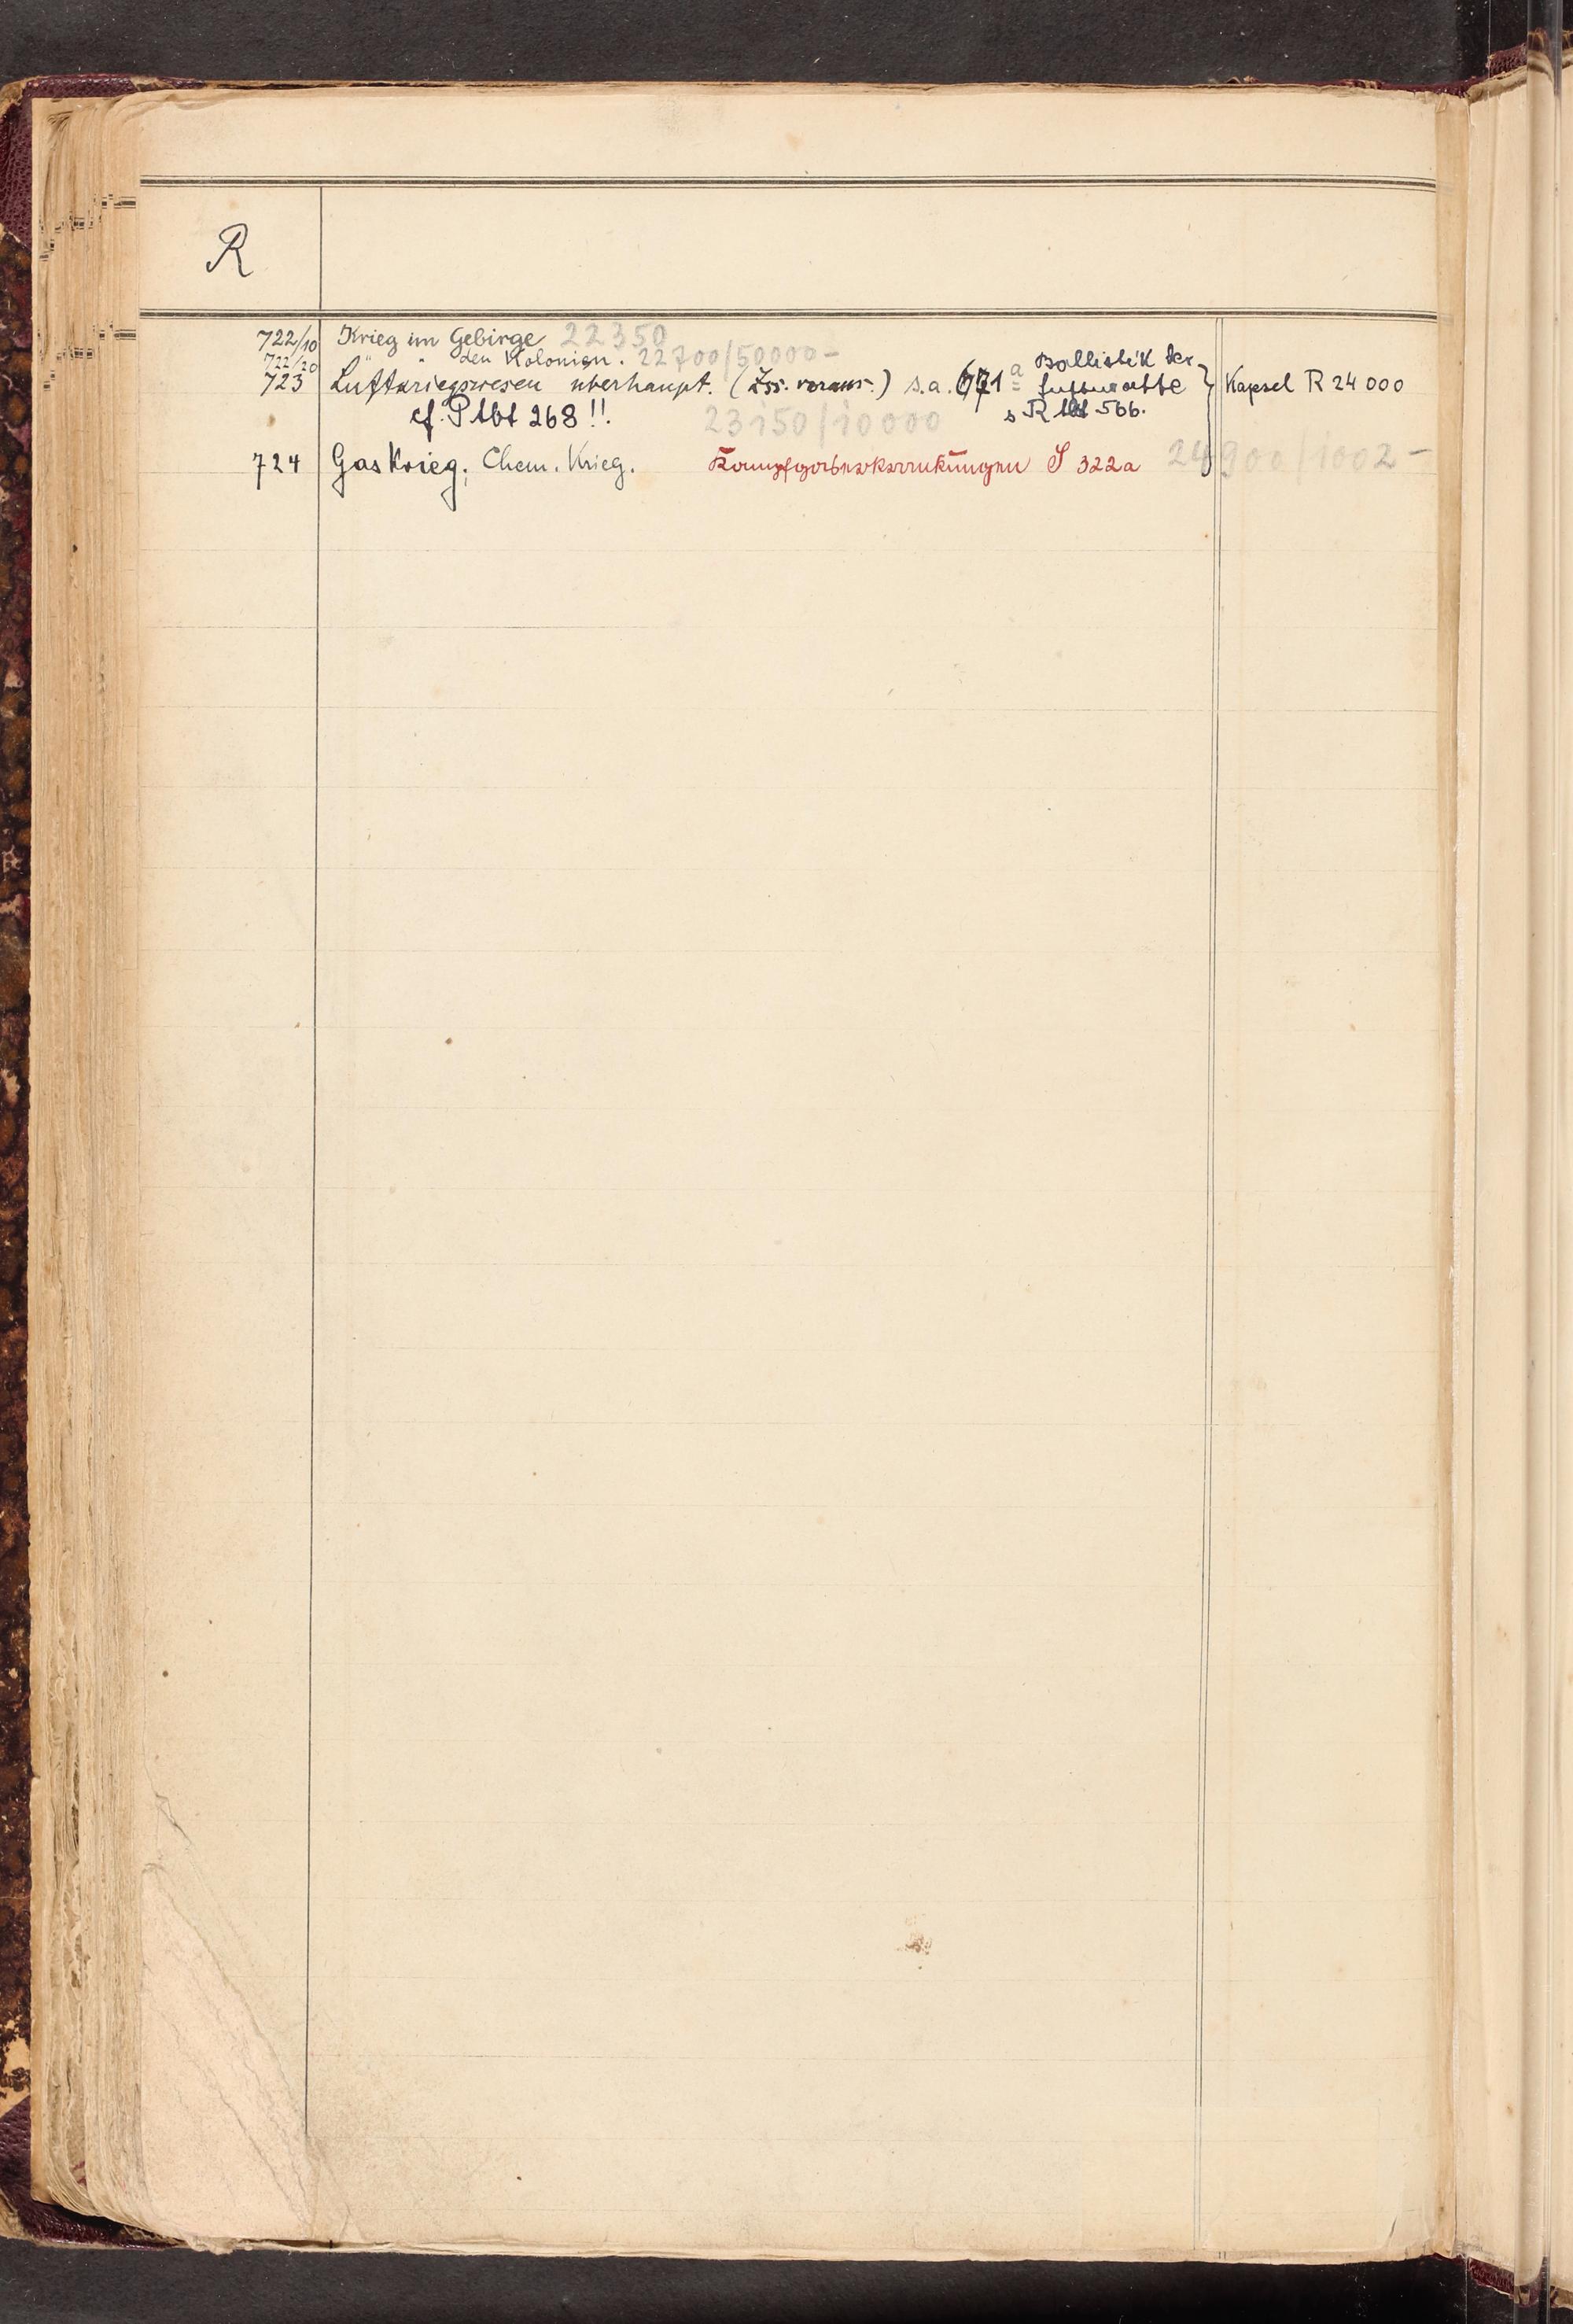 R
722/10 Krieg im Gebirge 22350
722/20 " " den Kolonien. 22700/50000-
723 Luftkriegswesen überhaupt. (Zss. voraus.) s.a. 671a Ballistik der Luftwaffe s R 566. Kapsel R 24 000
cf. P tbt 268!! 23150/10000
724 Gaskrieg; Chem. Krieg. Kampfgaserkrankungen S 322a 24900/1002-